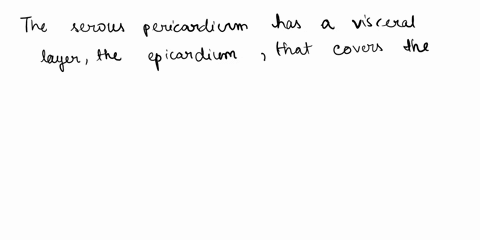 The serous pericardium has a visceral
layer, the epicardium, that covers the